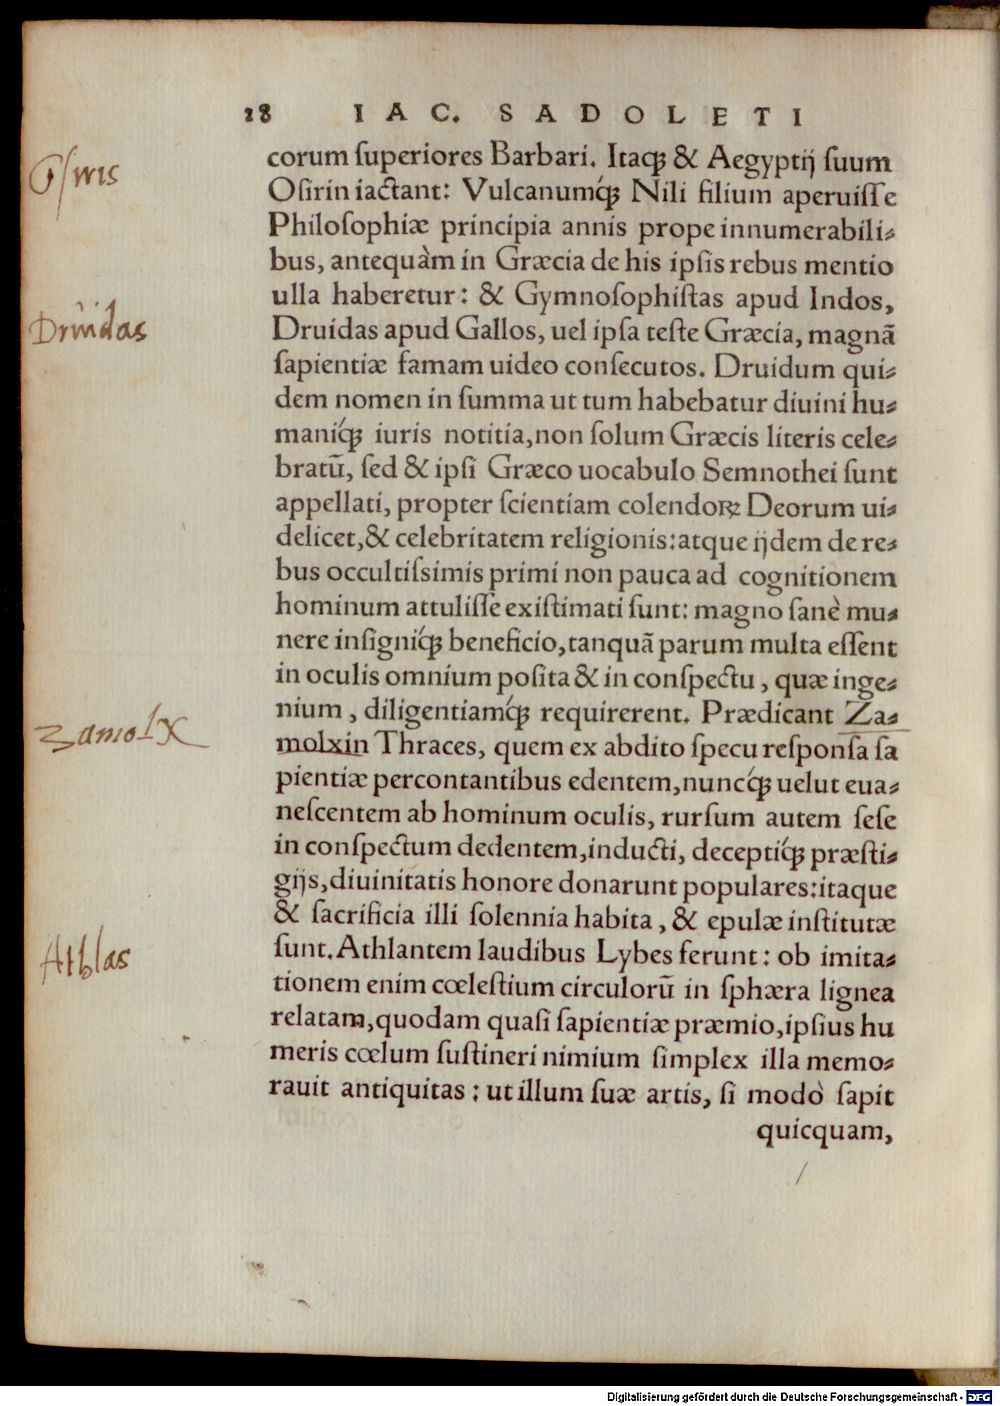 28 IAC. SADOLETI
corum ſuperiores Barbari. Itaq; & Aegyptij ſuum
Oſirin iactant: Vulcanumq́; Nili filium aperuiſſe
Philoſophiæ principia annis prope innumerabili⸗
bus, antequàm in Græcia de his ipſis rebus mentio
ulla haberetur: & Gymnoſophiſtas apud Indos,
Druidas apud Gallos, uel ipſa teſte Græcia, magnã
ſapientiæ famam uideo conſecutos. Druidum qui⸗
dem nomen in ſumma ut tum habebatur diuini hu⸗
maniq́; iuris notitia, non ſolum Græcis literis cele⸗
bratũ, ſed & ipſi Græco uocabulo Semnothei ſunt
appellati, propter ſcientiam colendoꝝ Deorum ui⸗
delicet, & celebritatem religionis: atque ijdem de re⸗
bus occultiſsimis primi non pauca ad cognitionem
hominum attuliſſe exiſtimati ſunt: magno ſanè mu⸗
nere inſigniq́; beneficio, tanquã parum multa eſſent
in oculis omnium poſita & in conſpectu, quæ inge⸗
nium, diligentiamq́; requirerent. Prædicant Za⸗
molxin Thraces, quem ex abdito ſpecu reſponſa ſa
pientiæ percontantibus edentem, nuncq́; uelut eua⸗
neſcentem ab hominum oculis, rurſum autem ſeſe
in conſpectum dedentem, inducti, deceptiq́; præſti⸗
gijs, diuinitatis honore donarunt populares: itaque
& ſacrificia illi ſolennia habita, & epulæ inſtitutæ
ſunt. Athlantem laudibus Lybes ferunt: ob imita⸗
tionem enim cœleſtium circulorũ in ſphæra lignea
relatam, quodam quaſi ſapientiæ præmio, ipſius hu
meris cœlum ſuſtineri nimium ſimplex illa memo⸗
rauit antiquitas: ut illum ſuæ artis, ſi modò ſapit
quicquam,
Oſiris
Druidas
Zamolx
Athlas
Digitalisierung gefördert durch die Deutsche Forschungsgemeinschaft - DFG